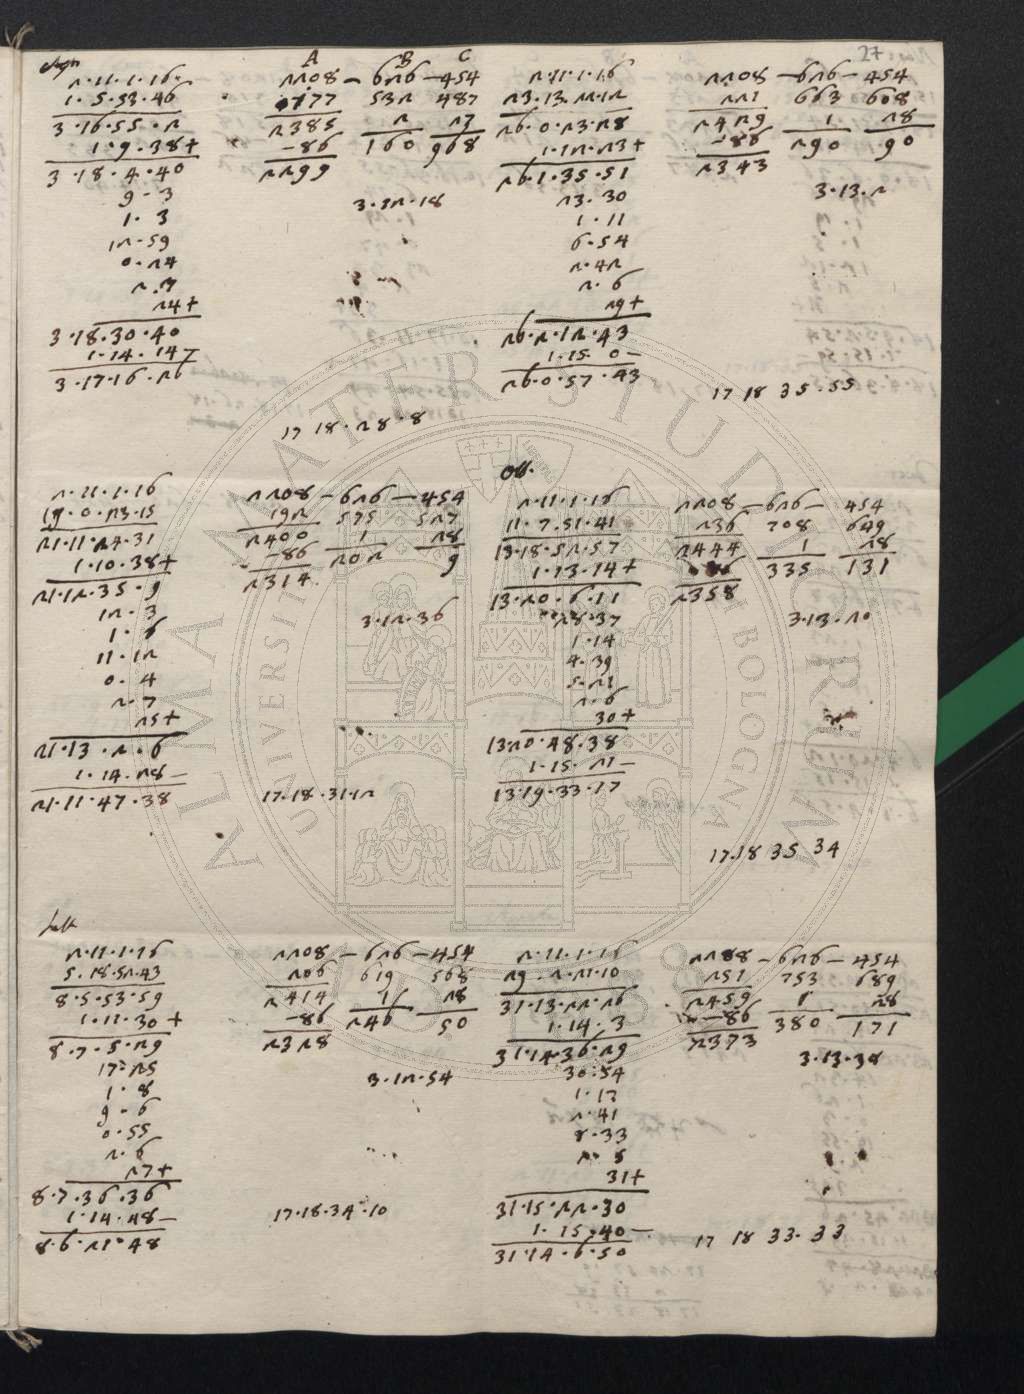 27
Agn
2·11·1·16
1·5·53·46
3·16·55·2
1·9·38+
3·18·4·40
9·3
1·3
12·59
0·24
2·7
24+
3·18·30·40
1·14·14-
3·17·16·26
A B C
2208 – 626 – 454
177 532 487
2385 2 27
-86 160 968
2299
3·12·18
17 18·28·8
2·11·1·16
23·13·22·12
26·0·23·28
1·12·23+
26·1·35·51
23·30
1·11
6·54
2·42
2·6
29+
26·2·12·43
1·15·0-
26·0·57·43
2208 – 626 – 454
221 663 608
2429 1 28
-86 290 90
2343
3·13·2
17 18 35·55
2·11·1·16
19·0·23·15
21·11·24·31
1·10·38+
21·12·35·9
12·3
1·6
11·12
0·4
2·7
25+
21·13·2·6
1·14·28-
21·11·47·38
2208 – 626 – 454
192 575 527
2400 1 28
-86 202 9
2314
3·12·36
17·18·31·12
Ott.
2·11·1·16
11·7·51·41
13·18·52·57
1·13·14+
13·20·6·11
28·37
1·14
4·39
5·21
2·6
30+
13·20·48·38
1·15·21-
13·19·33·17
2208 – 626 – 454
236 708 649
2444 1 28
-86 335 131
2358
3·13·20
17·18 35 34
2·11·1·16
5·18·52·43
8·5·53·59
1·11·30+
8·7·5·29
17·25
1·8
9·6
0·55
2·6
27+
8·7·36·36
1·14·48-
8·6·21·48
2208 – 626 – 454
206 619 568
2414 1 28
-86 246 50
2328
3·12·54
17·18·34·10
2·11·1·16
29·2·21·10
31·13·22·26
1·14·3
31·14·36·29
30·54
1·17
2·41
8·33
2·5
31+
31·15·22·30
1·15·40-
31·14·6·50
2208 – 626 – 454
251 753 689
2459 1 28
-86 380 171
2373
3·13·38
17 18 33·33